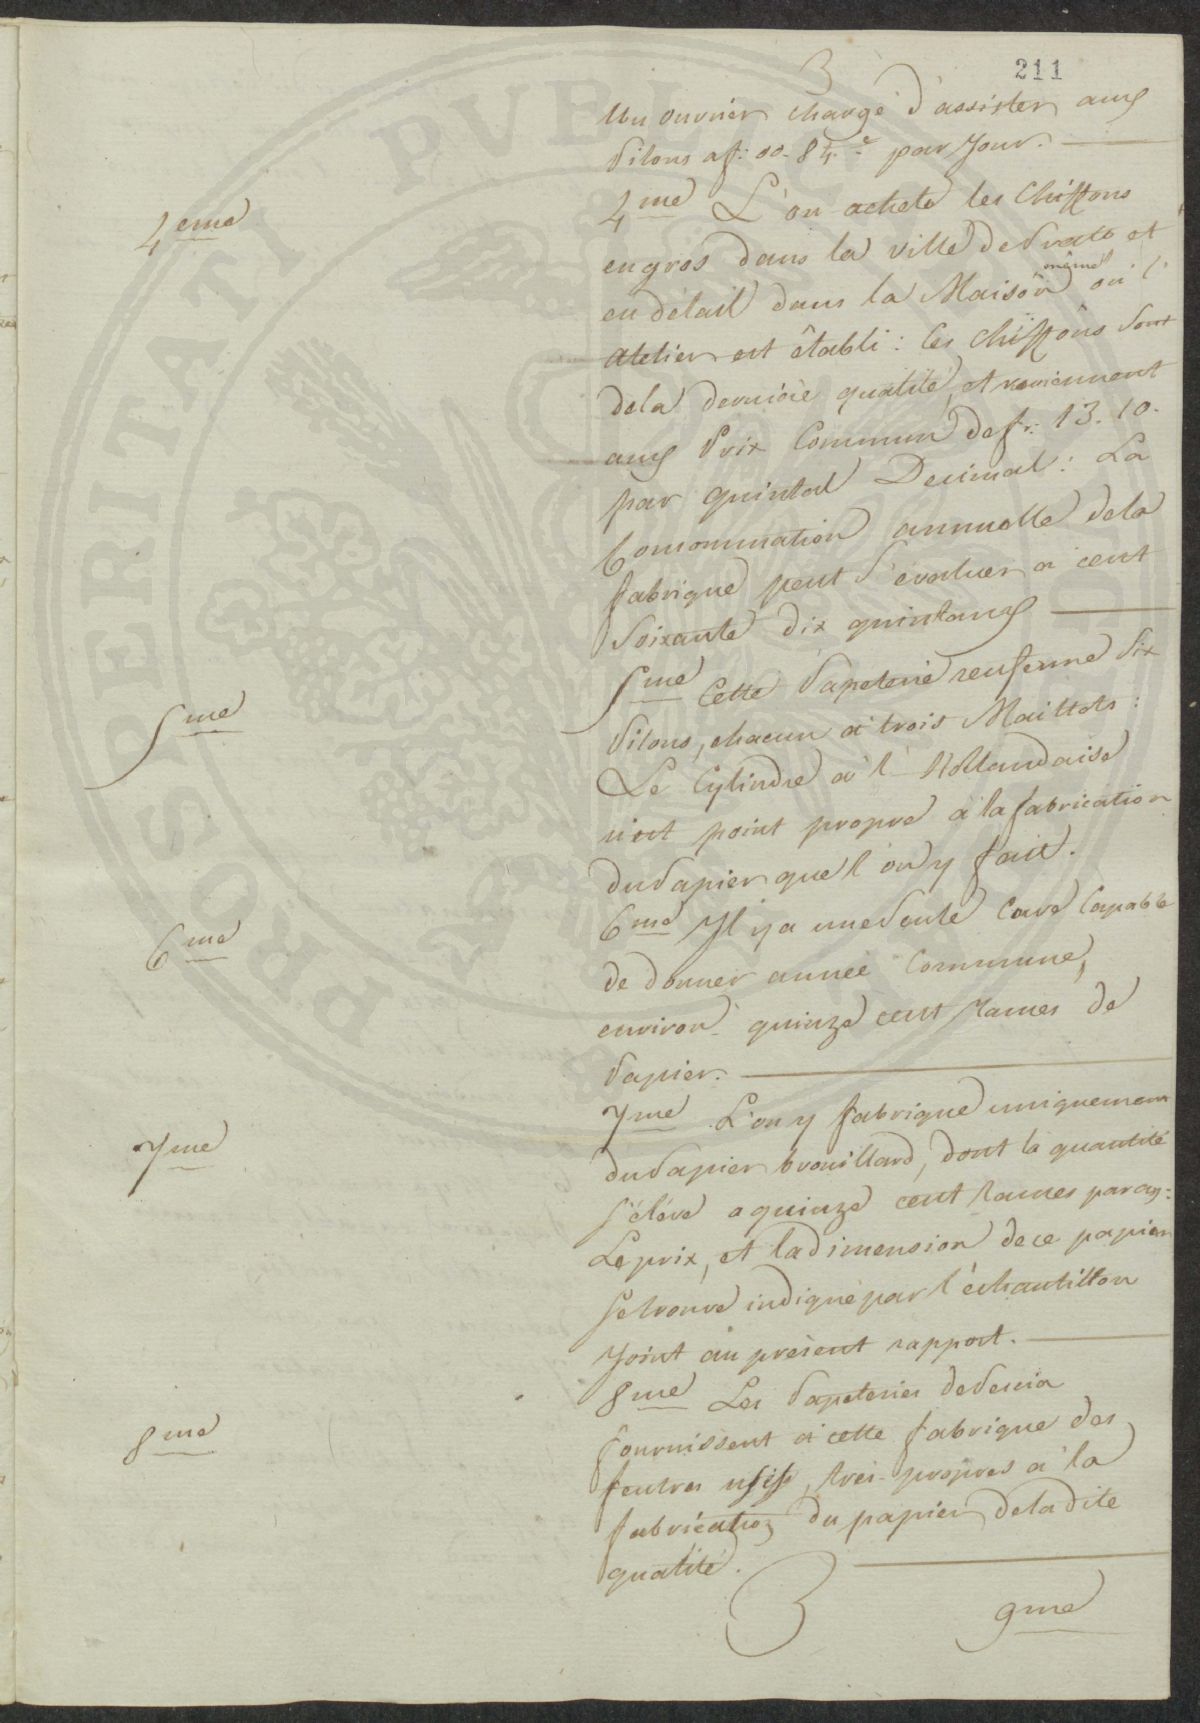 3
211
Un ouvrier chargé d'assister aux
Pilons a f: 00. 84.c par Jour.
4eme
4me L'on achete les Chiffons
en gros dans la ville de Prato et
en détail dans la Maison même où l'
atelier est êtabli : les Chiffons sont
de la derniere qualité, et reviennent
aux Prix Commun de fr: 13. 10.
par quintal Decimal : La
Consommation annuelle de la
fabrique peut s'évaluer a cent
Soixante dix quintaux
5me
5me Cette Papeterie renferme Six
Pilons, chacun a trois Maillets :
Le Cylindre à l'Hollandaise
n'est point propre à la fabrication
du Papier que l'on y fait.
6me
6me Il y a une Seule Cuve Capable
de donner année Commune,
environ quinze cent rames de
Papier.
7me
7me L'on y fabrique uniquement
du Papier brouillard, dont la quantité
s'éléve a quinze cent Rames par an :
Le prix, et la dimension de ce papier
se trouve indiqué par l'échantillon
Joint au présent rapport.
8me
8me Les Papeteries de Pescia
fournissent à cette fabrique des
feutres usés, très propres à la
fabrication du papier de la dite
qualité.
3
9me
PROSPERITATI PVBLICAE